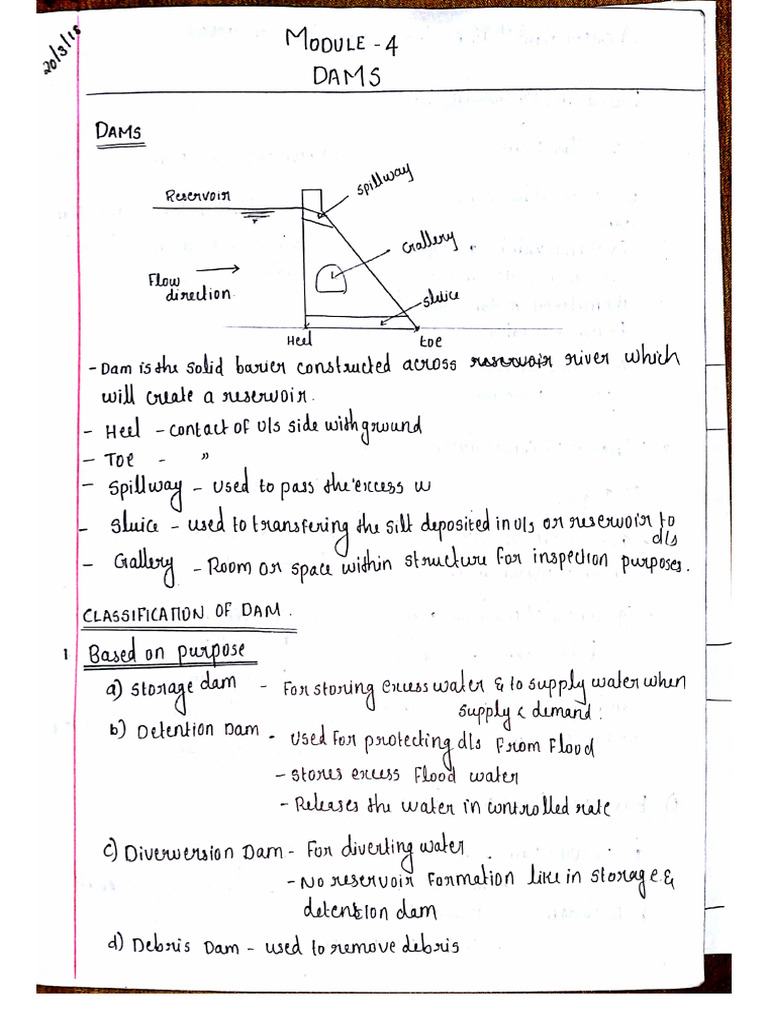 20/3/18
MODULE - 4
DAMS
DAMS
Reservoir
spillway
Gallery
Flow
direction
sluice
Heel
toe
- Dam is the solid barier constructed across river which
will create a reservoir.
- Heel - contact of U/s side with ground
- Toe - "
- Spillway - used to pass the excess w
- Sluice - used to transfering the silt deposited in U/s or reservoir to
d/s
- Gallery - Room or space within structure for inspection purposes.
CLASSIFICATION OF DAM.
1 Based on purpose
a) Storage dam - For storing excess water & to supply water when
supply < demand.
b) Detention Dam - Used for protecting d/s from flood
- Stores excess flood water
- Releases the water in controlled rate
c) Diverwersion Dam - For diverting water
- No reservoir formation like in storage &
detention dam
d) Debris Dam - used to remove debris